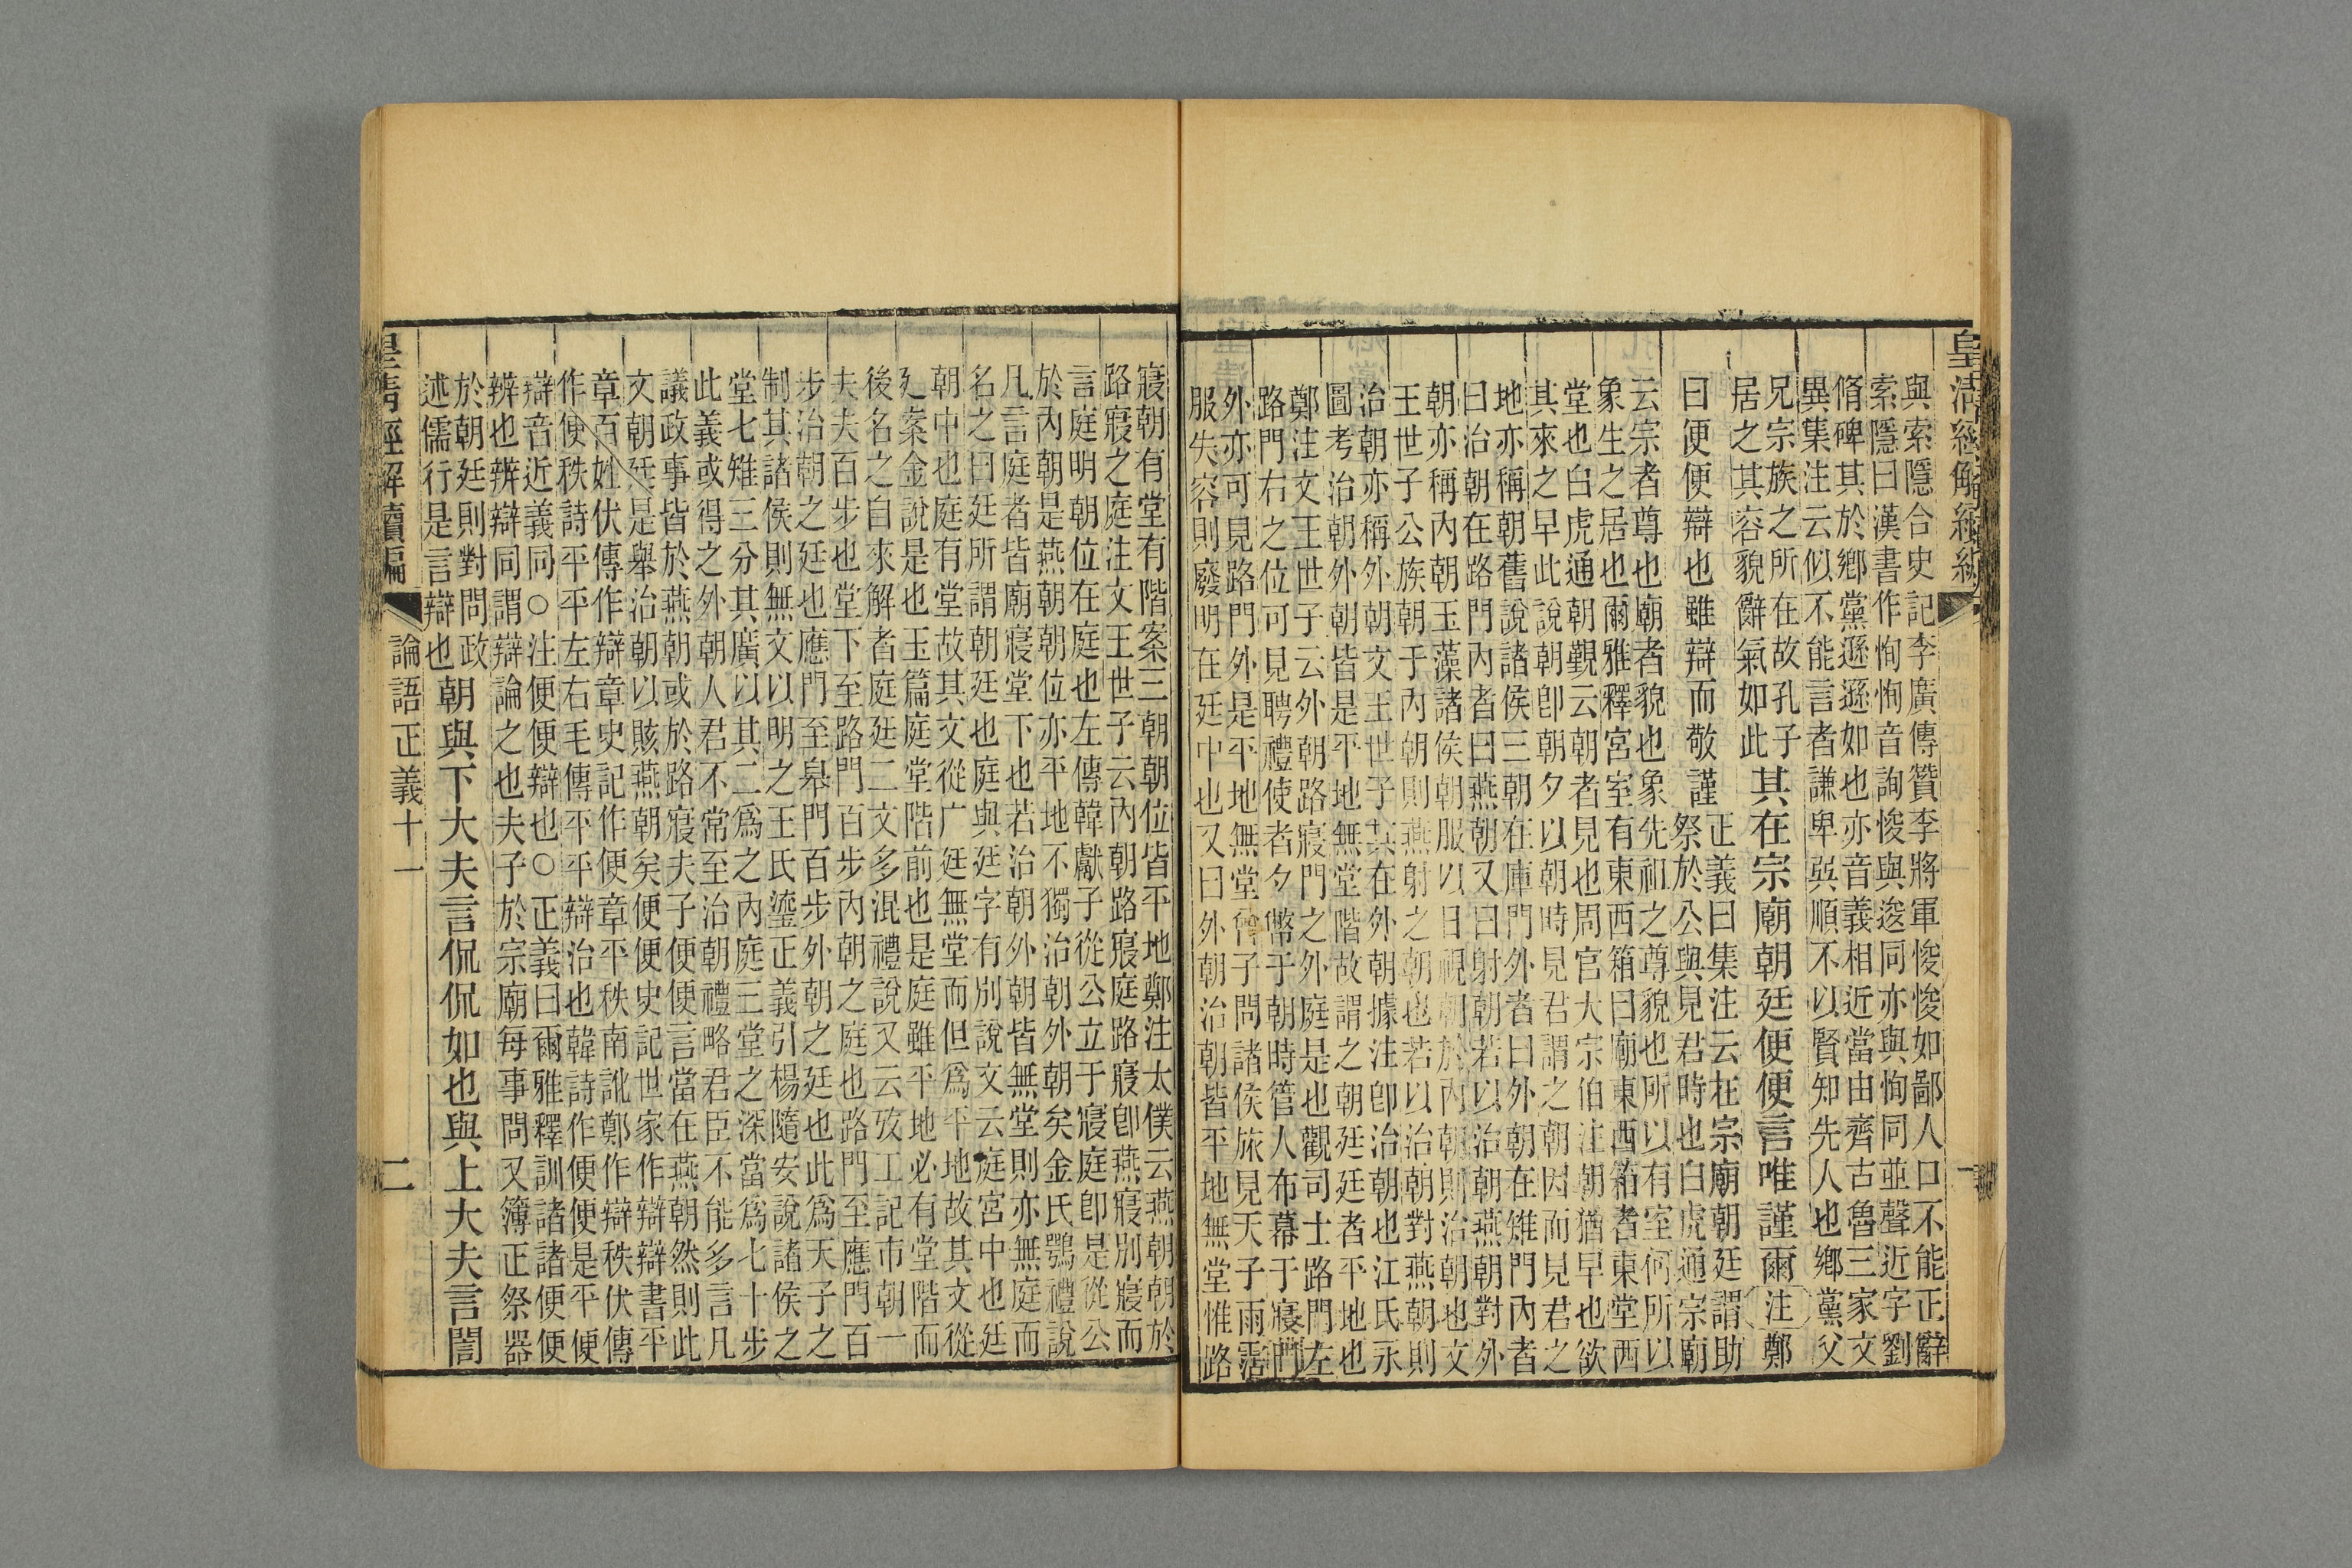 皇清經解續編
與索隱合史記李廣傳贊李將軍悛悛如鄙人口不能正辭
索隱曰漢書作恂恂音詢悛與逡同亦與恂同並聲近字劉
脩碑其於鄉黨遜遜如也亦音義相近當由齊古魯三家文
異集注云似不能言者謙卑㢲順不以賢知先人也鄉黨父
兄宗族之所在故孔子
居之其容貌辭氣如此
其在宗廟朝廷便便言唯謹爾
注鄭
曰便便辯也雖辯而敬謹
正義曰集注云在宗廟朝廷謂助
祭於公與見君時也白虎通宗廟
云宗者尊也廟者貌也象先祖之尊貌也所以有室何所以
象生之居也爾雅釋宮室有東西箱曰廟東西箱者東堂西
堂也白虎通朝覲云朝者見也周官大宗伯注朝猶早也欲
其來之早此說朝卽朝夕以朝時見君謂之朝因而見君之
地亦稱朝舊說諸侯三朝在庫門外者曰外朝在雉門內者
曰治朝在路門內者曰燕朝又曰射朝若以治朝燕朝對外
朝亦稱內朝玉藻諸侯朝服以日視朝於內朝則治朝也文
王世子公族朝于內朝則燕射之朝也若以治朝對燕朝則
治朝亦稱外朝文王世子其在外朝據注卽治朝也江氏永
圖考治朝外朝皆是平地無堂階故謂之朝廷廷者平地也
鄭注文王世子云外朝路寢門之外庭是也觀司士路門左
路門右之位可見聘禮使者夕幣于朝時管人布幕于寢門
外亦可見路門外是平地無堂曾子問諸侯旅見天子雨霑
服失容則廢明在廷中也又曰外朝治朝皆平地無堂惟路
寢朝有堂有階案三朝朝位皆平地鄭注太僕云燕朝朝於
路寢之庭注文王世子云內朝路寢庭路寢卽燕寢別寢而
言庭明朝位在庭也左傳韓獻子從公立于寢庭卽是從公
於內朝是燕朝朝位亦平地不獨治朝外朝矣金氏鶚禮說
凡言庭者皆廟寢堂下也若治朝外朝皆無堂則亦無庭而
名之曰廷所謂朝廷也庭與廷字有別說文云庭宮中也廷
朝中也庭有堂故其文從广廷無堂而但爲平地故其文從
廴案金說是也玉篇庭堂階前也是庭雖平地必有堂階而
後名之自來解者庭廷二文多混禮說又云攷工記市朝一
夫夫百步也堂下至路門百步內朝之庭也路門至應門百
步治朝之廷也應門至皋門百步外朝之廷也此爲天子之
制其諸侯則無文以明之王氏瑬正義引楊隨安說諸侯之
堂七雉三分其廣以其二爲之內庭三堂之深當爲七十步
此義或得之外朝人君不常至治朝禮略君臣不能多言凡
議政事皆於燕朝或於路寢夫子便便言當在燕朝然則此
文朝廷是舉治朝以賅燕朝矣便便史記世家作辯辯書平
章百姓伏傳作辯章史記作便章平秩南訛鄭作辯秩伏傳
作便秩詩平平左右毛傳平平辯治也韓詩作便便是平便
辯音近義同○注便便辯也○正義曰爾雅釋訓諸諸便便
辨也辨辯同謂辯論之也夫子於宗廟每事問又簿正祭器
於朝廷則對問政
述儒行是言辯也
朝與下大夫言侃侃如也與上大夫言誾
皇清經解續編
論語正義十一
二